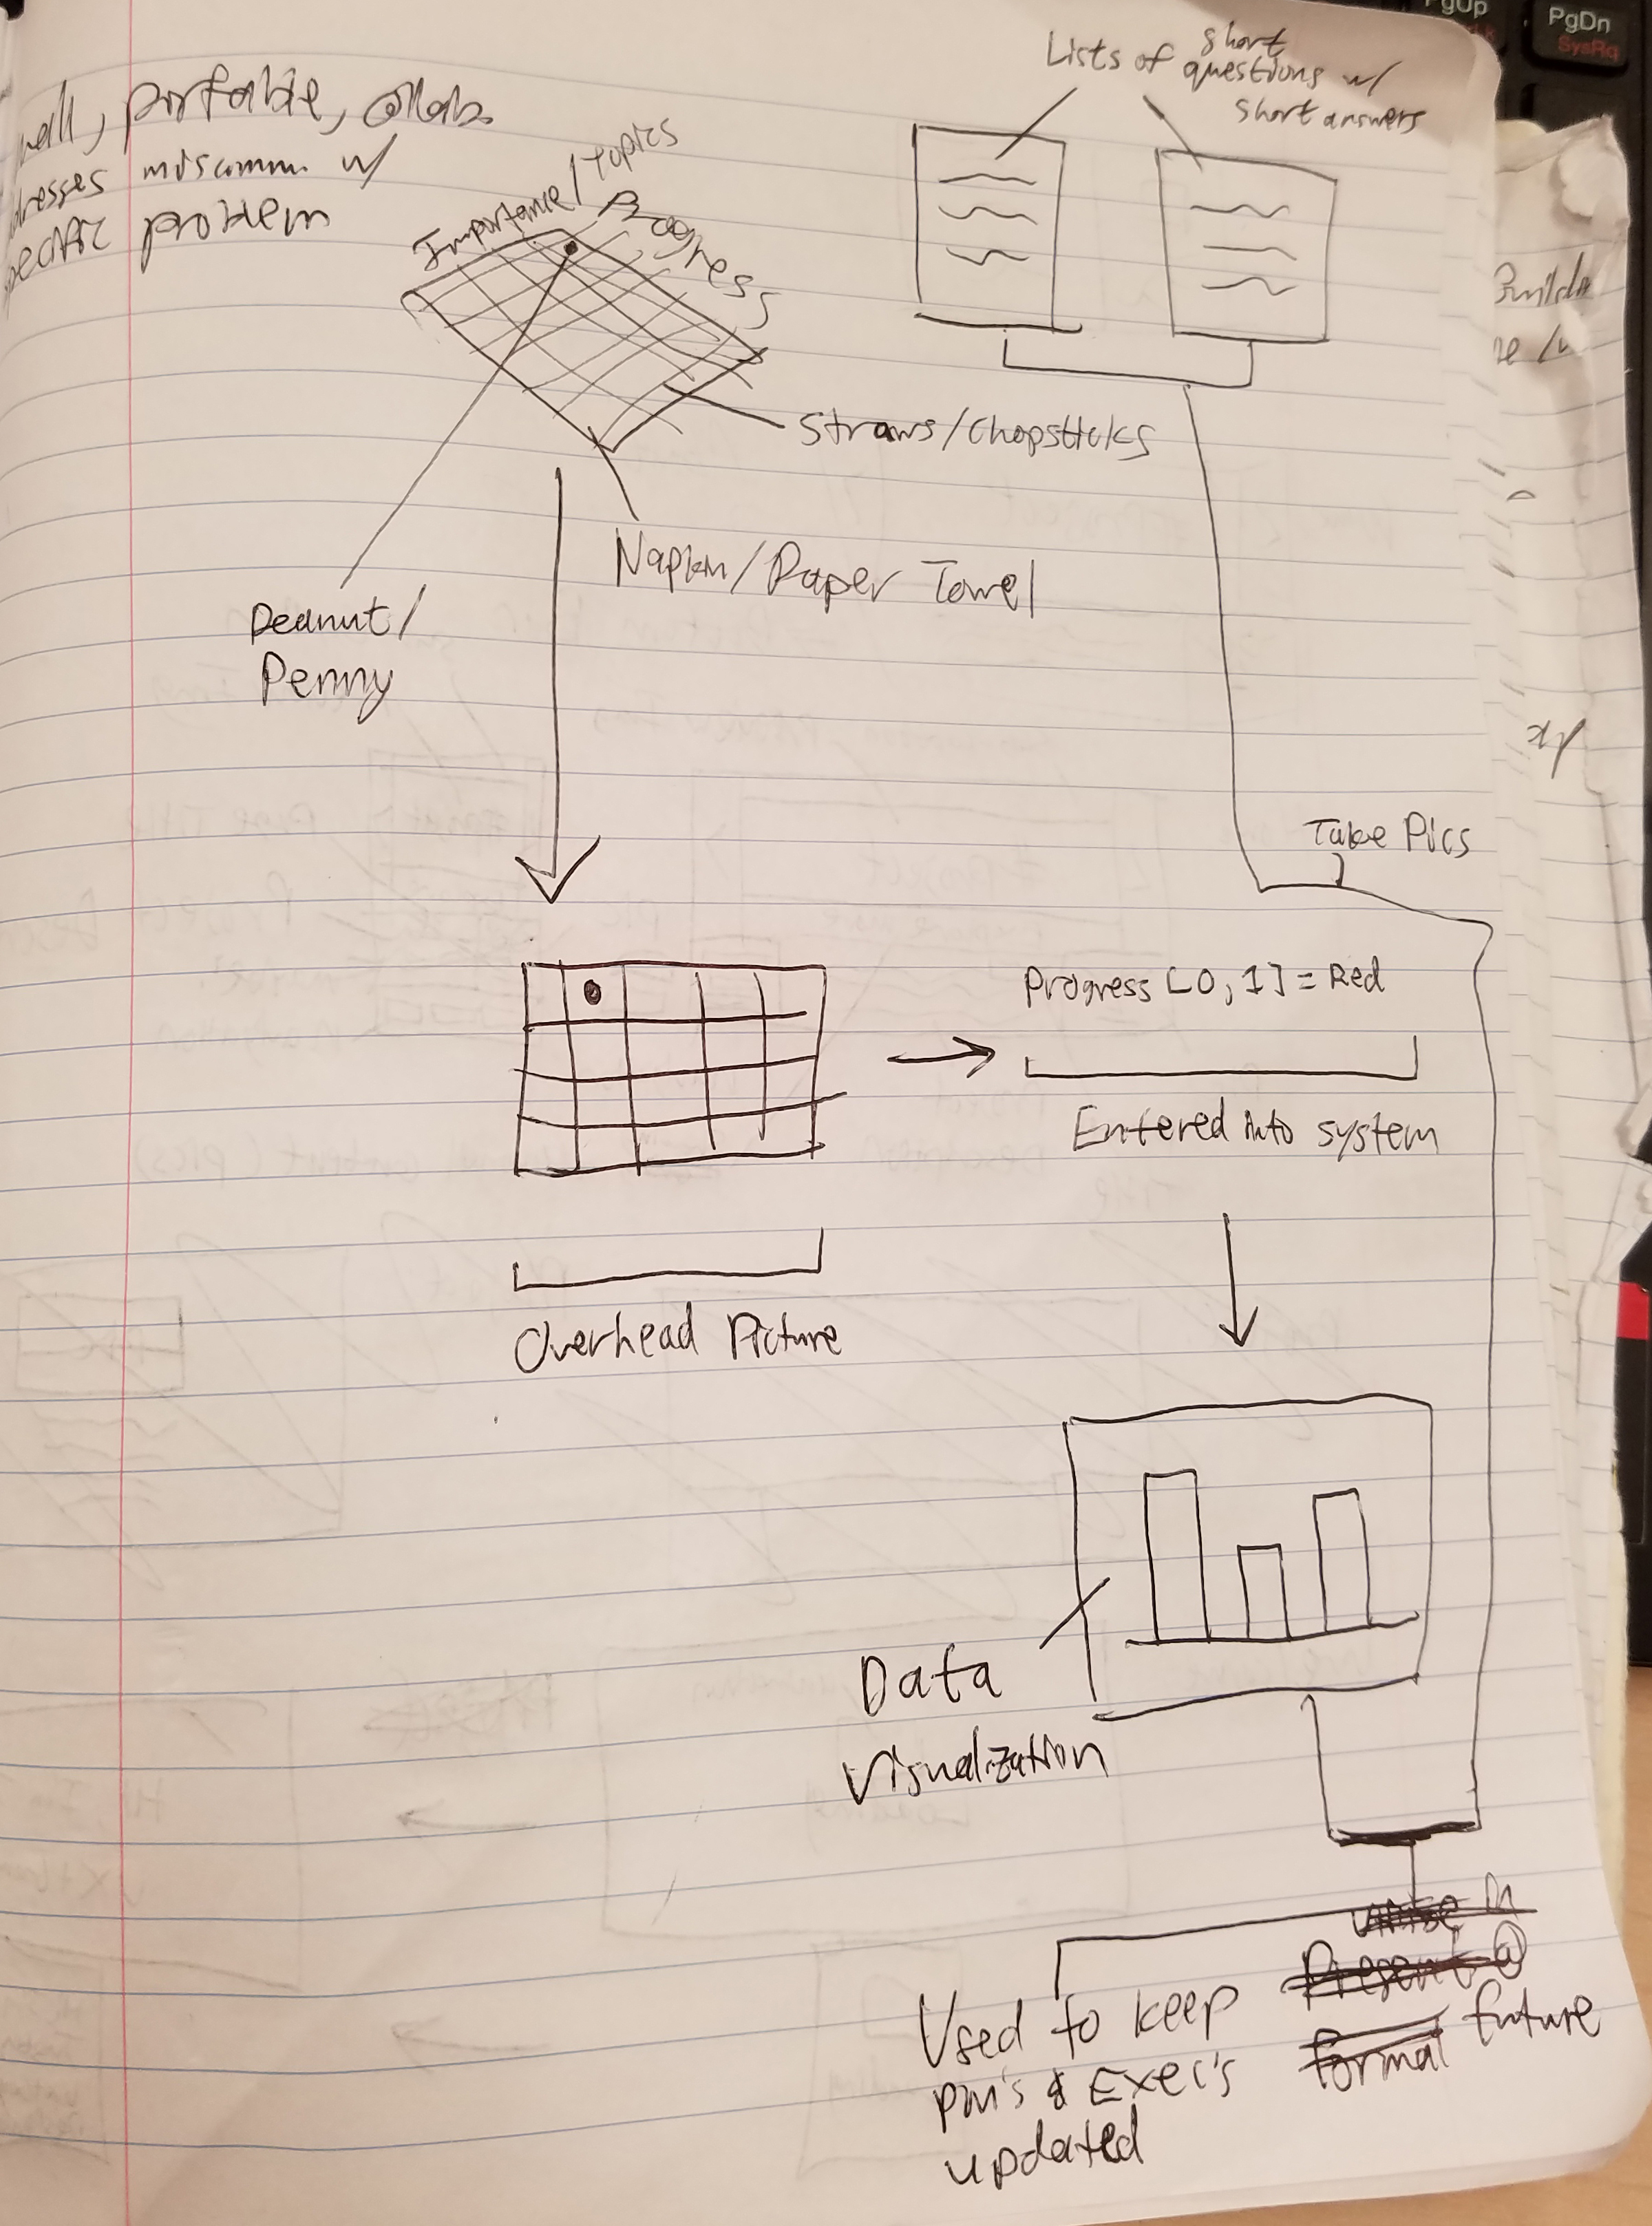 portable, collab.
miscomm. w/
problem
Importance/Topics
Progress
Lists of short
questions w/
short answers
Straws/Chopsticks
Napkin/Paper Towel
Peanut/
Penny
Take Pics
Progress [0, 1] = Red
Entered into system
Overhead Picture
Data
Visualization
Used to keep
PM's & Exec's
updated
Present @
formal future
PgUp
PgDn
SysRq